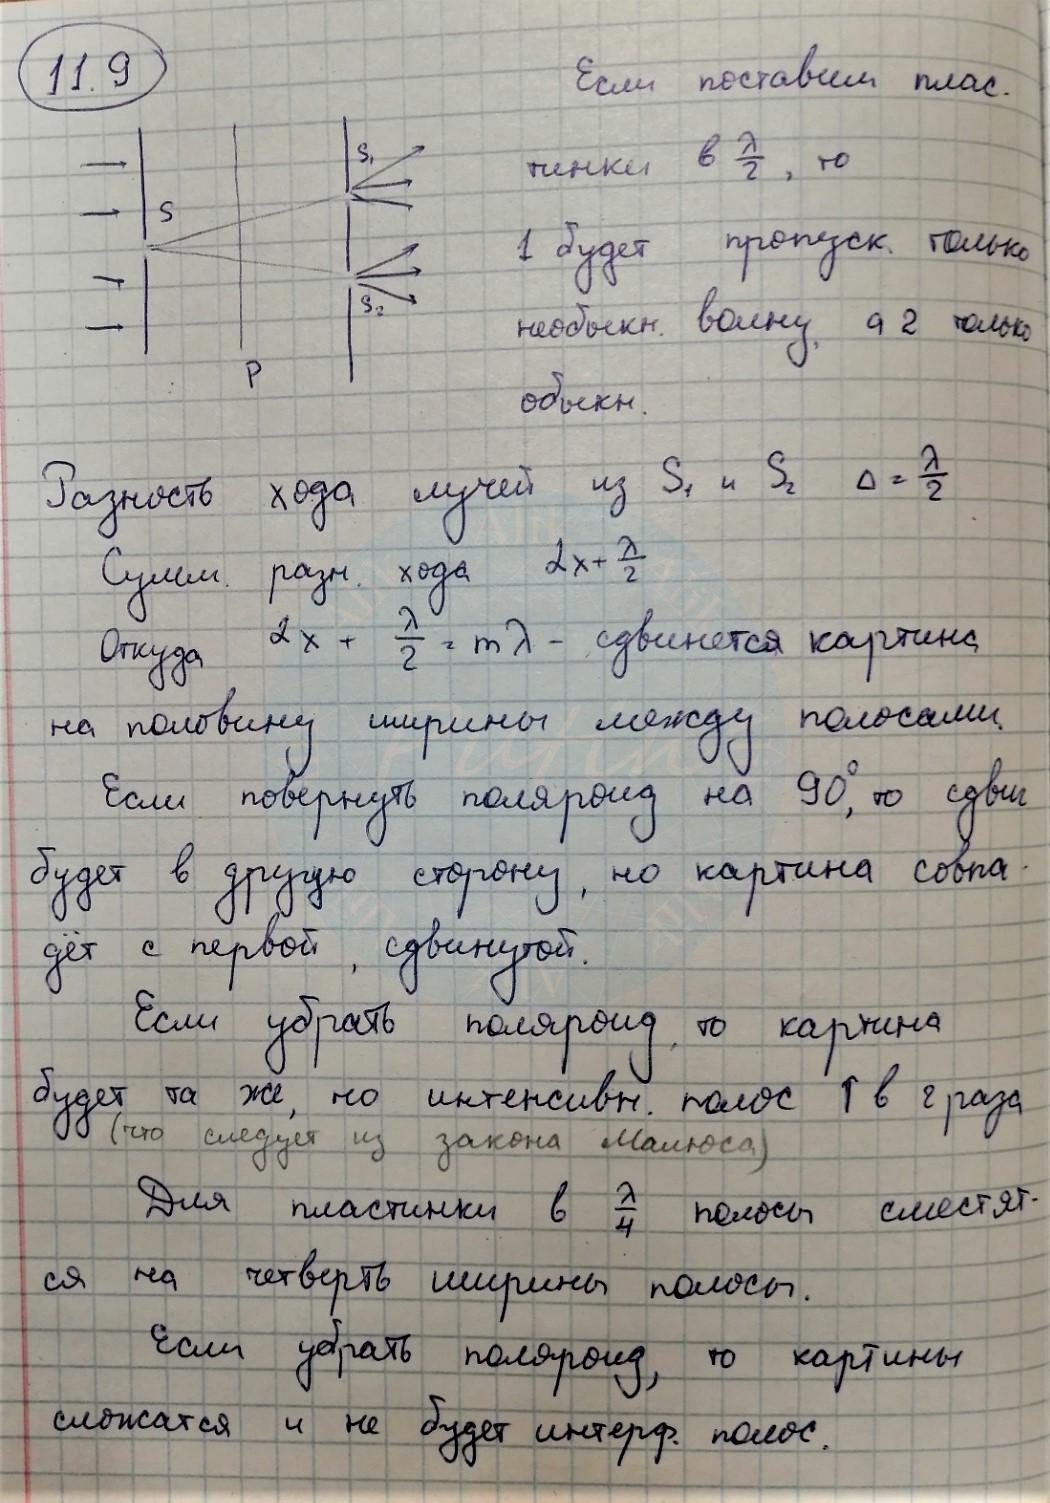 11.9
Если поставим плас.
S₁
тинки в λ/2, то
S
1 будет пропуск. только
S₂
необыкн. волну, а 2 только
P
обыкн.
Разность хода лучей из S₁ и S₂ Δ = λ/2
Сумм. разн. хода 2x + λ/2
Откуда 2x + λ/2 = mλ - сдвинется картина
на половину ширины между полосами.
Если повернуть поляроид на 90°, то сдвиг
будет в другую сторону, но картина совпа-
дёт с первой, сдвинутой.
Если убрать поляроид, то картина
будет та же, но интенсивн. полос ↑ в 2 раза
(что следует из закона Малюса)
Для пластинки в λ/4 полосы сместят-
ся на четверть ширины полосы.
Если убрать поляроид, то картины
сложатся и не будет интерф. полос.